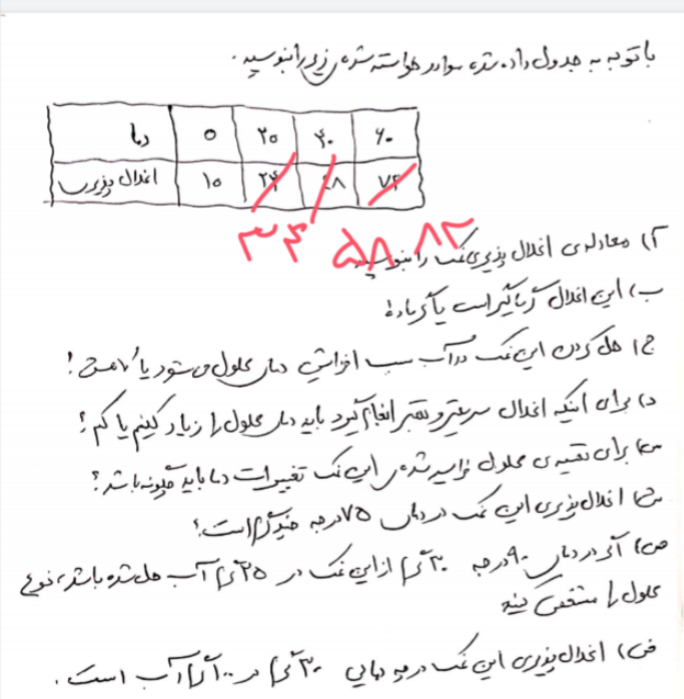 با توجه به جدول داده شده موارد خواسته شده ی زیر را بنویسید.
دما ۰ ۲۰ ۴۰ ۶۰
انحلال پذیری ۱۰ ۲۴ ۴۸ ۷۲
۳۴ ۵۸ ۸۲
آ) معادله ی انحلال پذیری نمک را بنویسید
ب) این انحلال گرماگیر است یا گرماده؟
ج) حل کردن این نمک در آب سبب افزایش دمای محلول می شود یا کاهش؟
د) برای اینکه انحلال سریعتر و بهتر انجام گیرد باید دمای محلول را زیاد کنیم یا کم؟
س) برای تهیه ی محلول فراسیر شده ی این نمک تغییرات دما باید چگونه باشد؟
ش) انحلال پذیری این نمک در دمای ۷۵ درجه چند گرم است؟
ص) اگر در دمای ۹۰ درجه ۲۰ گرم از این نمک در ۲۵ گرم آب حل شده باشد، نوع
محلول را مشخص کنید
ض) انحلال پذیری این نمک در چه دمایی ۳۰ گرم در ۱۰۰ گرم آب است.